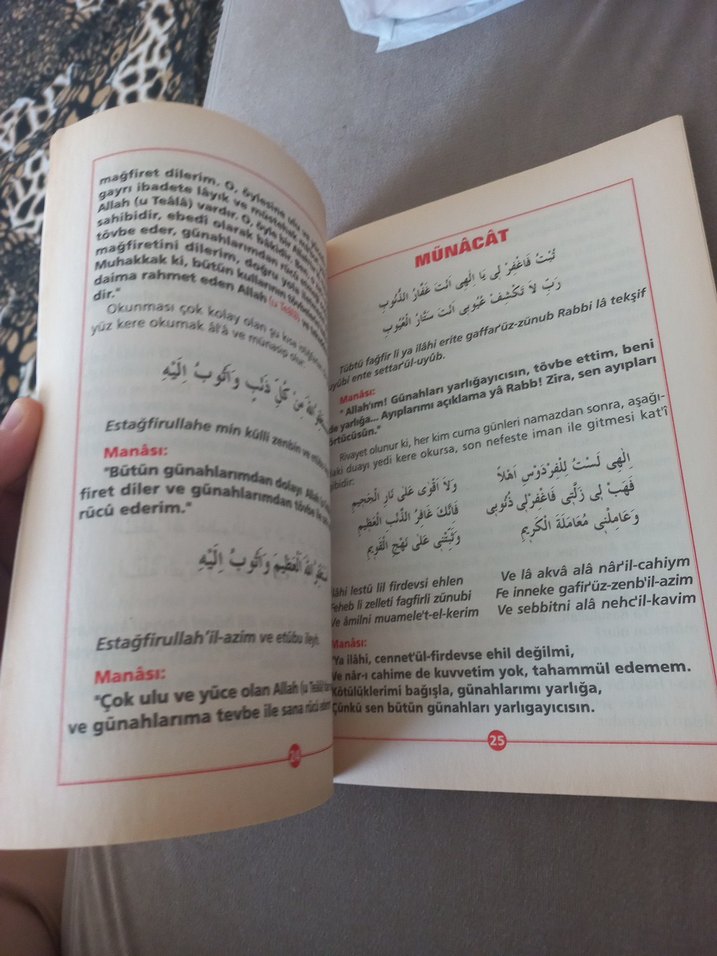 mağfiret dilerim. O, öylesine ulu ve
gayrı ibadete lâyık ve müstehak
Allah (u Teâlâ) vardır. O, öyle bir
sahibidir, ebedî olarak bâkidir.
tövbe eder, günahlarımdan rücû
mağfiretini dilerim, doğru yolu
Muhakkak ki, bütün kullarının tövbelerini
daima rahmet eden Allah (u Teâlâ)
dir."
Okunması çok kolay olan şu kısa
yüz kere okumak âl'â ve münasip olur.
اللهَ مِنْ كُلِّ ذَنْبٍ وَاَتُوبُ اِلَيْهِ
Estağfirullahe min külli zenbin ve etûbü
Manâsı:
"Bütün günahlarımdan dolayı Allah
firet diler ve günahlarımdan tövbe ile
rücû ederim."
اللهَ الْعَظِيمَ وَاَتُوبُ اِلَيْهِ
Estağfirullah'il-azim ve etûbu ileyh.
Manâsı:
"Çok ulu ve yüce olan Allah (u Teâlâ)
ve günahlarıma tevbe ile sana rücû
24
MÜNÂCÂT
تُبْتُ فَاغْفِرْ لِى يَا اِلٰهِى اَنْتَ غَفَّارُ الذُّنُوبِ
رَبِّ لَا تَكْشِفْ عُيُوبِى اَنْتَ سَتَّارُ الْعُيُوبِ
Tübtü fağfir li ya ilâhi erite gaffar'üz-zünub Rabbi lâ tekşif
uyûbi ente settar'ül-uyûb.
Manâsı:
" Allah'ım! Günahları yarlığayıcısın, tövbe ettim, beni
de yarlığa... Ayıplarımı açıklama yâ Rabb! Zira, sen ayıpları
örtücüsün."
Rivayet olunur ki, her kim cuma günleri namazdan sonra, aşağı-
daki duayı yedi kere okursa, son nefeste iman ile gitmesi kat'î
gibidir:
اِلٰهِى لَسْتُ لِلْفِرْدَوْسِ اَهْلاً وَلَا اَقْوٰى عَلٰى نَارِ الْجَحِيمِ
فَهَبْ لِى زَلَّتِى فَاغْفِرْلِى ذُنُوبِى فَاِنَّكَ غَافِرُ الذَّنْبِ الْعَظِيمِ
وَعَامِلْنِى مُعَامَلَةَ الْكَرِيمِ وَثَبِّتْنِى عَلٰى نَهْجِ الْقَوِيمِ
lâhi lestü lil firdevsi ehlen Ve lâ akvâ alâ nâr'il-cahiym
Feheb li zelleti fagfirli zünubi Fe inneke gafir'üz-zenb'il-azim
Ve âmilni muamele't-el-kerim Ve sebbitni alâ nehc'il-kavim
Manâsı:
'Ya ilâhi, cennet'ül-firdevse ehil değilmi,
Ve nâr-ı cahime de kuvvetim yok, tahammül edemem.
Kötülüklerimi bağışla, günahlarımı yarlığa,
Çünkü sen bütün günahları yarlıgayıcısın.
25